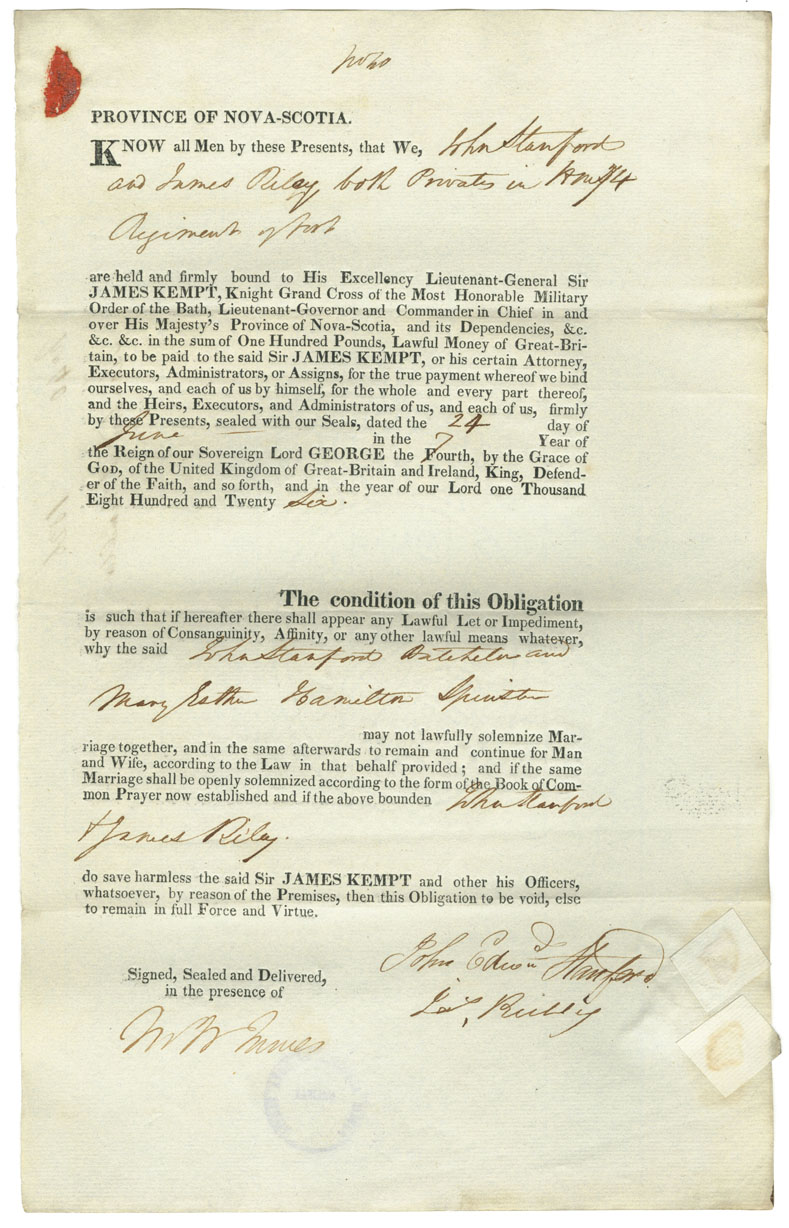 PROVINCE OF NOVA-SCOTIA.
KNOW all Men by these Presents, that We, John Stanford
and James Riley, both Privates in 74
Regiment of foot
are held and firmly bound to His Excellency Lieutenant-General Sir
JAMES KEMPT, Knight Grand Cross of the Most Honorable Military
Order of the Bath, Lieutenant-Governor and Commander in Chief in and
over His Majesty's Province of Nova-Scotia, and its Dependencies, &c.
&c. &c. in the sum of One Hundred Pounds, Lawful Money of Great-Bri-
tain, to be paid to the said Sir JAMES KEMPT, or his certain Attorney,
Executors, Administrators, or Assigns, for the true payment whereof we bind
ourselves, and each of us by himself, for the whole and every part thereof,
and the Heirs, Executors, and Administrators of us, and each of us, firmly
by these Presents, sealed with our Seals, dated the 24 day of
June in the 7 Year of
the Reign of our Sovereign Lord GEORGE the Fourth, by the Grace of
GOD, of the United Kingdom of Great-Britain and Ireland, King, Defend-
er of the Faith, and so forth, and in the year of our Lord one Thousand
Eight Hundred and Twenty Six.
The condition of this Obligation
is such that if hereafter there shall appear any Lawful Let or Impediment,
by reason of Consanguinity, Affinity, or any other lawful means whatever,
why the said John Stanford Batchelor and
Mary Esther Hamilton Spinster
may not lawfully solemnize Mar-
riage together, and in the same afterwards to remain and continue for Man
and Wife, according to the Law in that behalf provided; and if the same
Marriage shall be openly solemnized according to the form of the Book of Com-
mon Prayer now established and if the above bounden John Stanford
& James Riley.
do save harmless the said Sir JAMES KEMPT and other his Officers,
whatsoever, by reason of the Premises, then this Obligation to be void, else
to remain in full Force and Virtue.
Signed, Sealed and Delivered,
in the presence of
John Edwd Stanford
Jas, Reilly